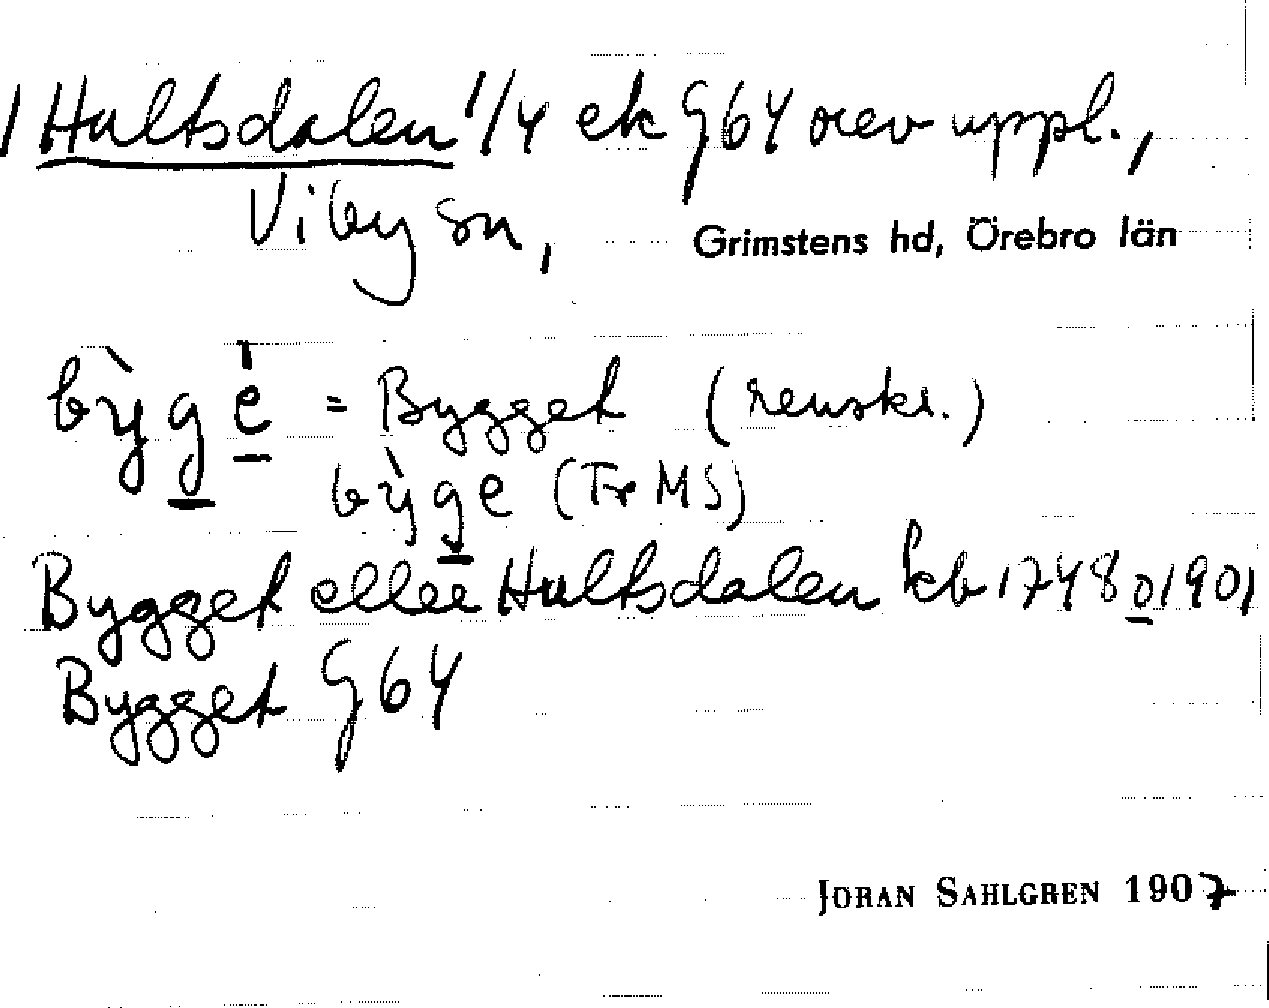 / Hultsdalen 1/4 ek G64 orev uppl.,
Viby sn, Grimstens hd, Örebro län
bỳgè = Bygget (renskr.)
bỳge (Fr MS)
Bygget eller Hultsdalen kb 1748 o 1901
Bygget G64
JORAN SAHLGREN 1907